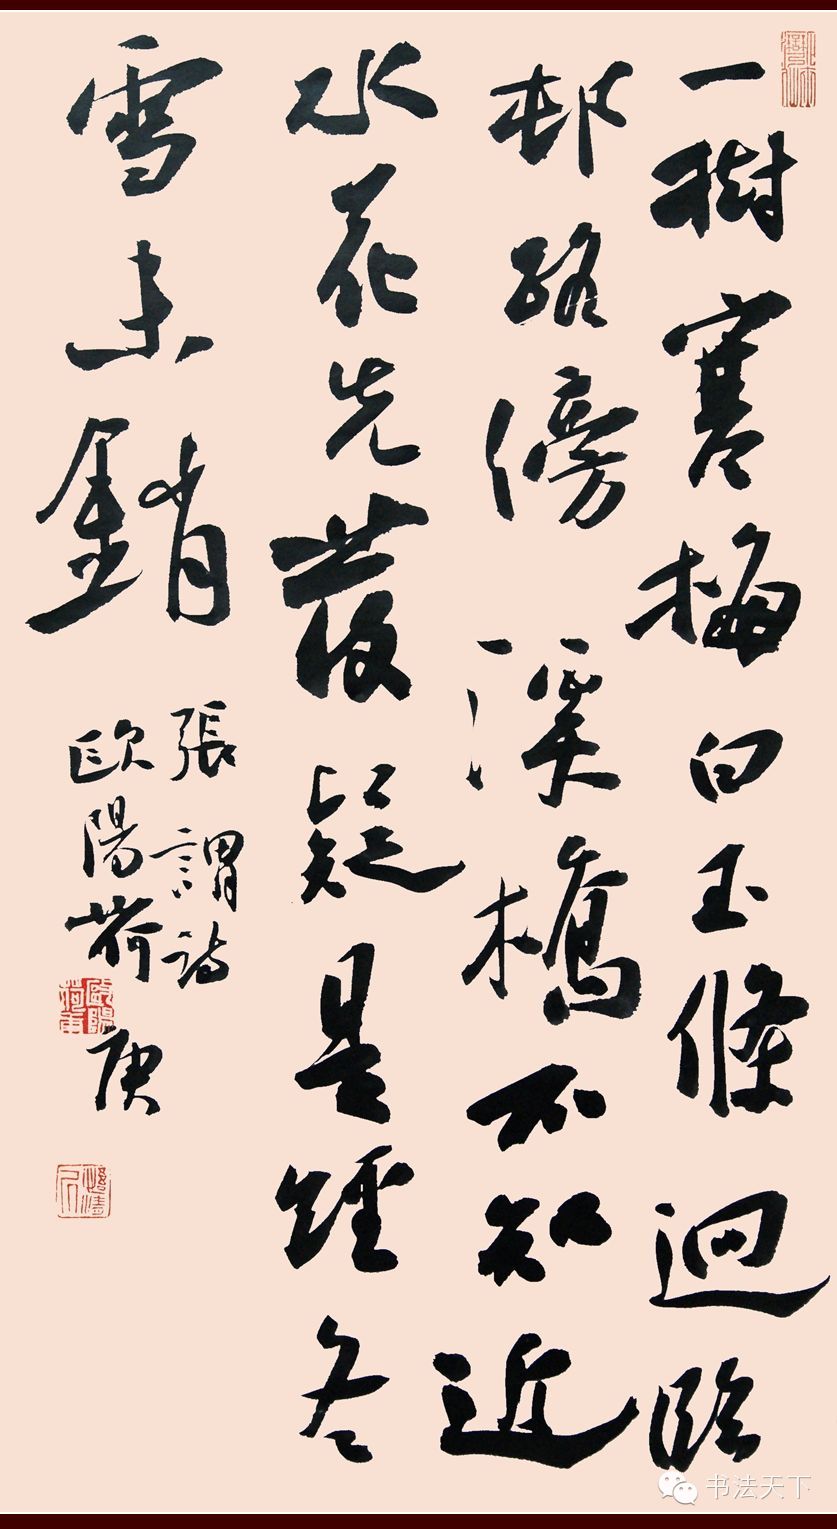 一樹寒梅白玉條迥臨
邨路傍溪橋不知近
水花先發疑是經冬
雪未銷
張謂詩
歐陽荷庚
书法天下